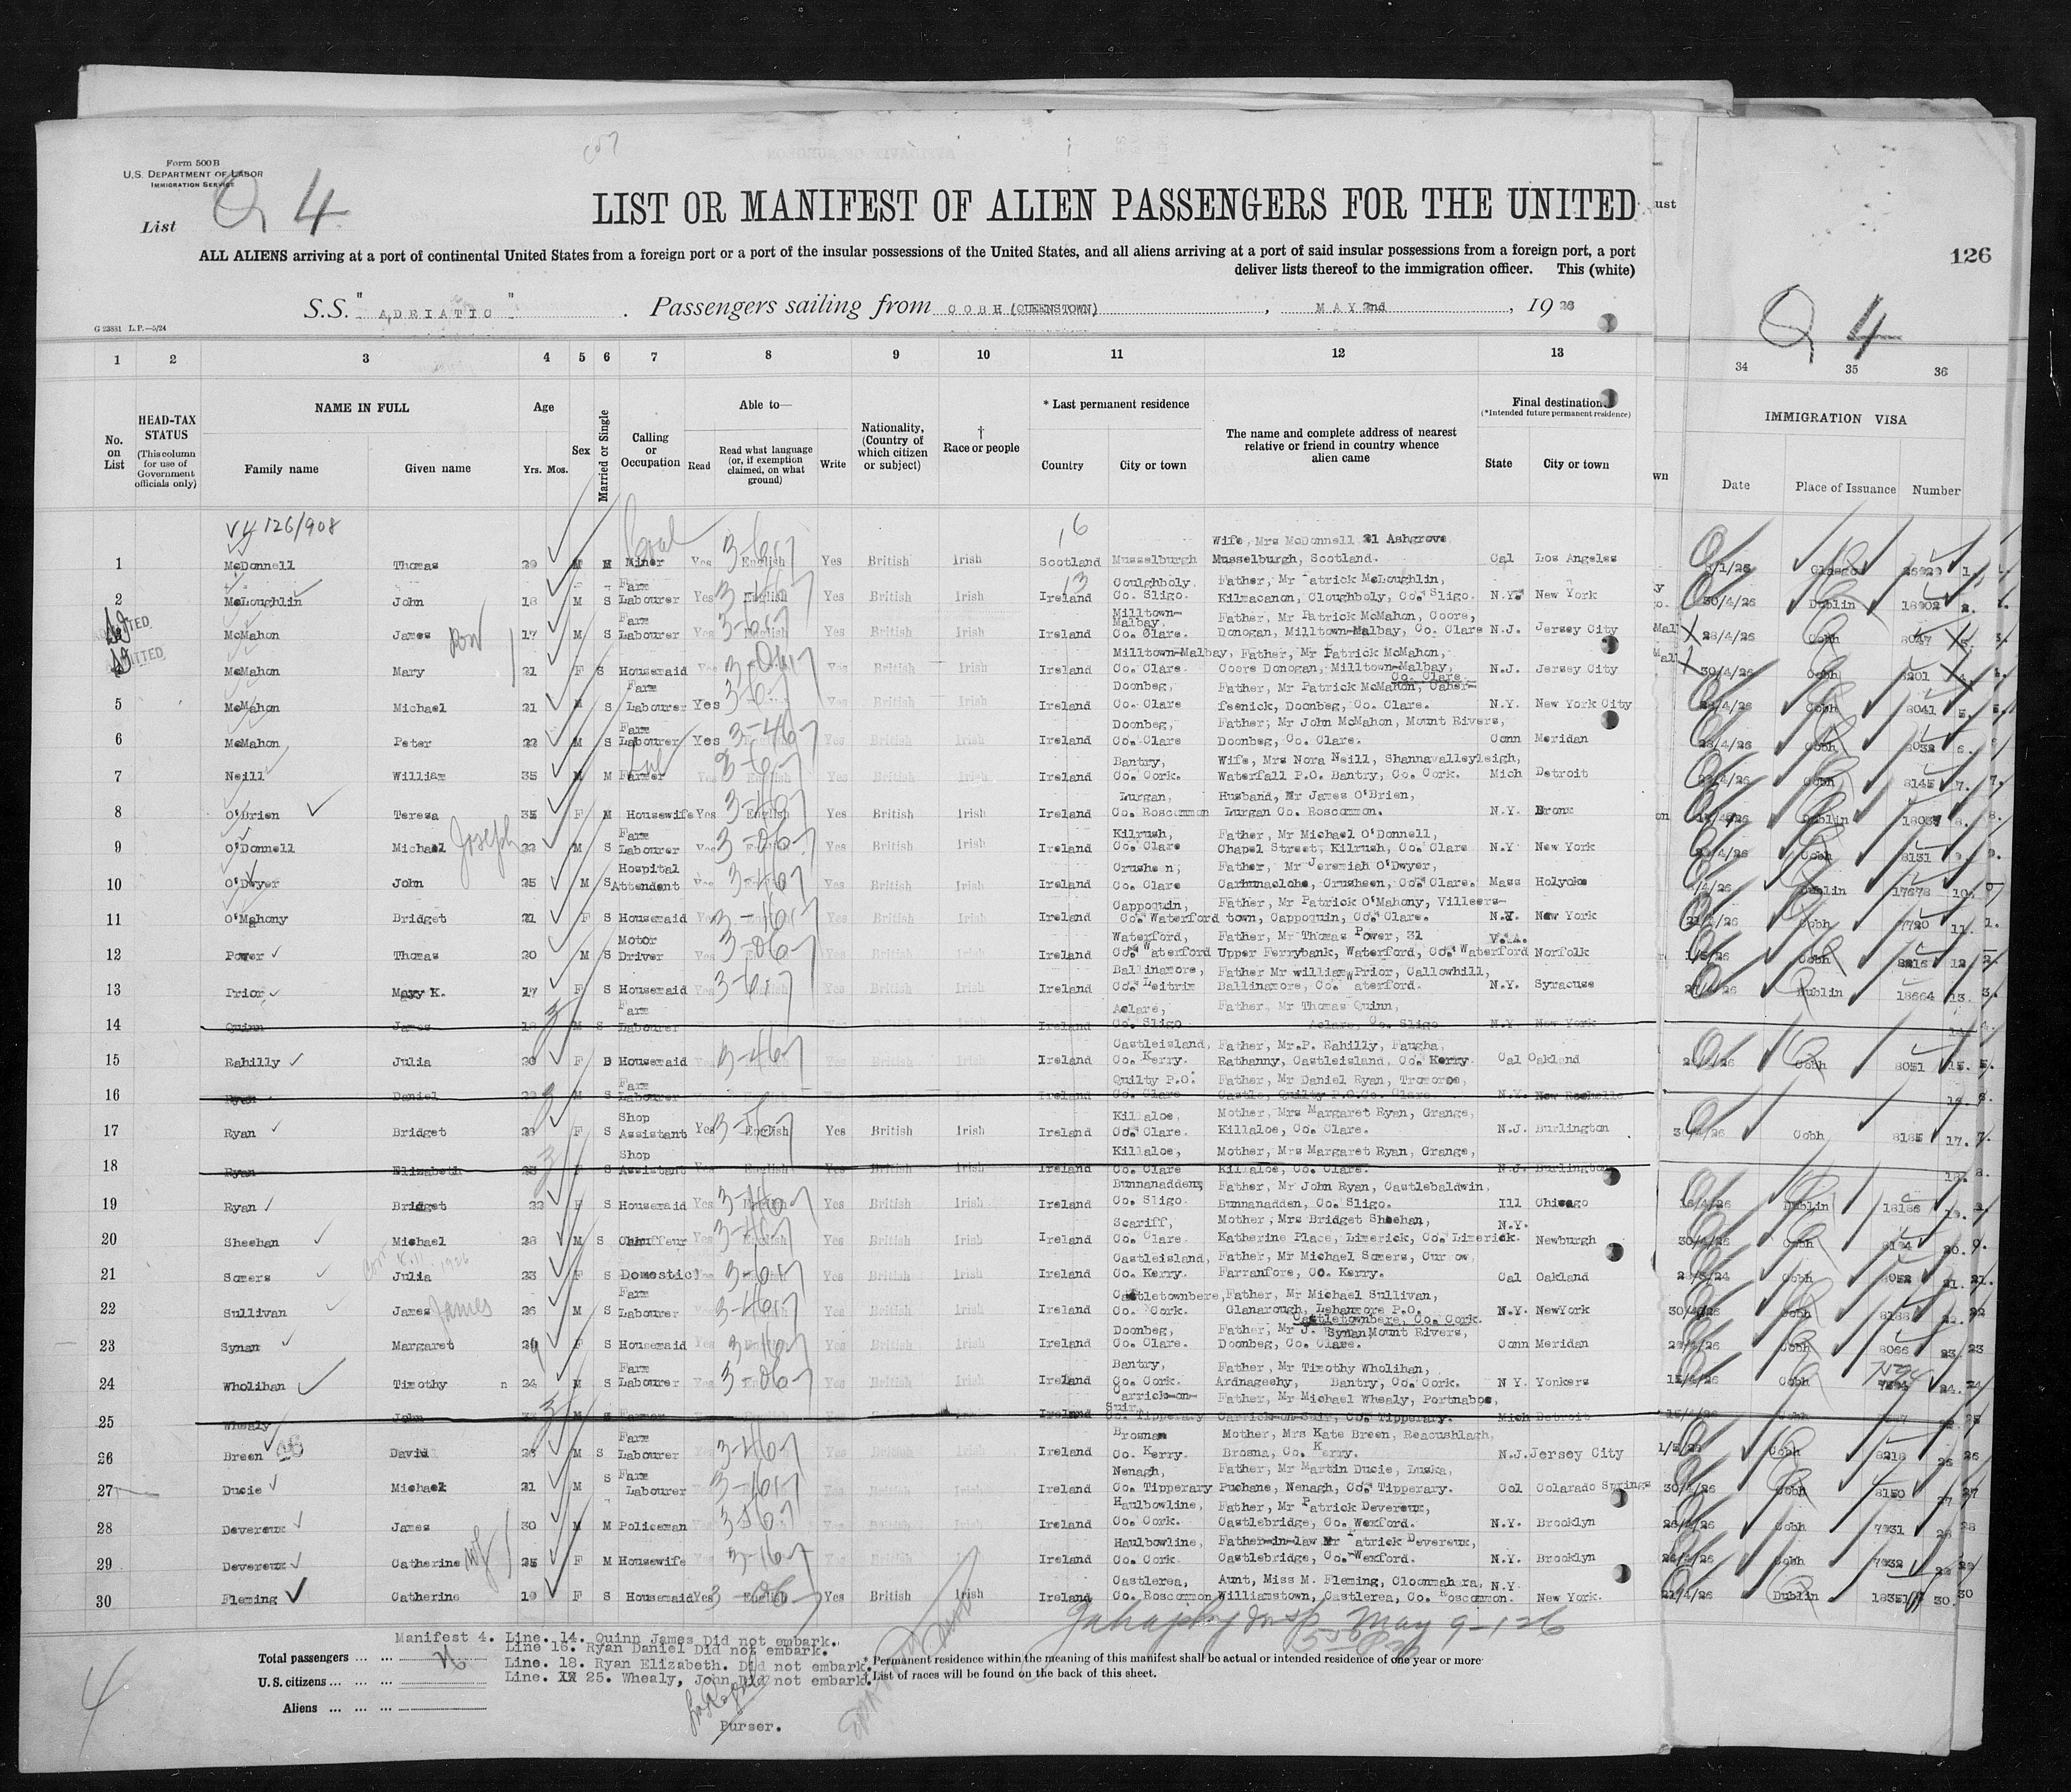 Form 500B
U.S. DEPARTMENT OF LABOR
IMMIGRATION SERVICE
List Q 4
LIST OR MANIFEST OF ALIEN PASSENGERS FOR THE UNITED
126
Q 4
ALL ALIENS arriving at a port of continental United States from a foreign port or a port of the insular possessions of the United States, and all aliens arriving at a port of said insular possessions from a foreign port, a port
deliver lists thereof to the immigration officer. This (white)
S.S. "ADRIATIC" . Passengers sailing from COBH (QUEENSTOWN) , MAY 2nd , 1926
G 23881 L.P.—5/24
1 2 3 4 5 6 7 8 9 10 11 12 13 34 35 36
No. on List
HEAD-TAX STATUS (This column for use of Government officials only)
NAME IN FULL
Family name Given name
Age Yrs. Mos.
Sex
Married or Single
Calling or Occupation
Able to—
Read Read what language (or, if exemption claimed, on what ground) Write
Nationality, (Country of which citizen or subject)
† Race or people
* Last permanent residence
Country City or town
The name and complete address of nearest relative or friend in country whence alien came
Final destination (*Intended future permanent residence)
State City or town
IMMIGRATION VISA
Date Place of Issuance Number
126/908
1 McDonnell Thomas 29 M M Coal Miner Yes English Yes British Irish Scotland Musselburgh Wife, Mrs McDonnell 21 Ashgrove, Musselburgh, Scotland. Cal Los Angeles Glasgow 1.
2 McLoughlin John 18 M S Farm Labourer Yes English Yes British Irish Ireland Coughboly Co. Sligo. Father, Mr Patrick McLoughlin, Kilmacanon, Cloughboly, Co. Sligo. N.Y. New York 30/4/26 Dublin 18902 2.
3 McMahon James 17 M S Farm Labourer Yes English Yes British Irish Ireland Milltown-Malbay. Co. Clare. Father, Mr Patrick McMahon, Coore, Donogan, Milltown-Malbay, Co. Clare N.J. Jersey City 28/4/26 Cobh 8047 3.
4 McMahon Mary 21 F S Housemaid Yes British Irish Ireland Milltown-Malbay, Co. Clare. Father, Mr Patrick McMahon, Coore Donogan, Milltown-Malbay, Co. Clare N.J. Jersey City 30/4/26 Cobh 8201 4.
5 McMahon Michael 21 M S Farm Labourer Yes Yes British Irish Ireland Doonbeg, Co. Clare Father, Mr Patrick McMahon, Caher-feenick, Doonbeg, Co. Clare. N.Y. New York City Cobh 8041 5.
6 McMahon Peter 22 M S Farm Labourer Yes English Yes British Irish Ireland Doonbeg, Co. Clare Father, Mr John McMahon, Mount Rivers, Doonbeg, Co. Clare. Conn Meridan 28/4/26 Cobh 8032 6.
7 Neill William 35 M M Farmer Yes English Yes British Irish Ireland Bantry, Co. Cork. Wife, Mrs Nora Neill, Shannavalleyleigh, Waterfall P.O. Bantry, Co. Cork. Mich Detroit Cobh 8145 7.
8 O'Brien Teresa 35 F M Housewife Yes English Yes British Irish Ireland Lurgan, Co. Roscommon Husband, Mr James O'Brien, Lurgan Co. Roscommon. N.Y. Bronx Dublin 8.
9 O'Donnell Michael Joseph 22 M S Farm Labourer Yes English Yes British Irish Ireland Kilrush, Co. Clare Father, Mr Michael O'Donnell, Chapel Street, Kilrush, Co. Clare N.Y New York Cobh 8131 9.
10 O'Dwyer John 25 M S Hospital Attendant Yes English Yes British Irish Ireland Crusheen, Co. Clare Father, Mr Jeremiah O'Dwyer, Carhunaclohe, Crusheen, Co. Clare. Mass Holyoke Dublin 17678 10.
11 O'Mahony Bridget 21 F S Housemaid Yes English Yes British Irish Ireland Cappoquin, Co. Waterford Father, Mr Patrick O'Mahony, Villeers-town, Cappoquin, Co. Clare. N.Y. New York Cobh 7720 11.
12 Power Thomas 20 M S Motor Driver Yes English Yes British Irish Ireland Waterford, Co. Waterford Father, Mr Thomas Power, 31 Upper Ferrybank, Waterford, Co. Waterford V.A. Norfolk 1/5/26 Cobh 8216 12
13 Prior Mary K. 17 F S Housemaid Yes English Yes British Irish Ireland Ballinamore, Co. Leitrim Father Mr william Prior, Callowhill, Ballinamore, Co. Waterford. N.Y. Syracuse Dublin 18664 13.
14 Quinn James M S Farm Labourer Yes British Irish Ireland Aclare, Co. Sligo Father, Mr Thomas Quinn, Aclare, Co. Sligo N.Y. New York 14.
15 Rahilly Julia 20 F S Housemaid Yes British Irish Ireland Castleisland, Co. Kerry. Father, Mr.P. Rahilly, Faugha, Rathanny, Castleisland, Co. Kerry Cal Oakland Cobh 8051 15.
16 Ryan Daniel M S Farm Labourer Ireland Quilty P.O. Co. Clare Father, Mr Daniel Ryan, Tromoroe, Castle, Quilty P.O. Co. Clare N.Y. New Rochelle 16.
17 Ryan Bridget 23 F S Shop Assistant Yes English Yes British Irish Ireland Killaloe, Co. Clare. Mother, Mrs Margaret Ryan, Grange, Killaloe, Co. Clare. N.J. Burlington Cobh 8185 17.
18 Ryan Elizabeth 23 F S Shop Assistant Yes English Yes British Irish Ireland Killaloe, Co. Clare Mother, Mrs Margaret Ryan, Grange, Killaloe, Co. Clare. N.J. Burlington 18.
19 Ryan Bridget 22 F S Housemaid Yes English Yes British Irish Ireland Bunnanaddenz, Co. Sligo. Father, Mr John Ryan, Castlebaldwin, Bunnanadden, Co. Sligo. Ill Chicago 16/4/26 Dublin 18186 19.
20 Sheehan Michael 28 M S Chauffeur Yes English Yes British Irish Ireland Scariff, Co. Clare. Mother, Mrs Bridget Sheehan, Katherine Place, Limerick, Co. Limerick. N.Y. Newburgh 30/4/26 Cobh 20.
21 Somers Julia 23 F S Domestic Yes Yes British Irish Ireland Castleisland, Co. Kerry. Father, Mr Michael Somers, Currow, Farranfore, Co. Kerry. Cal Oakland Cobh 8052 21.
22 Sullivan James James 26 M S Farm Labourer Yes British Irish Ireland Castletownbere, Co. Cork. Father, Mr Michael Sullivan, Glanarough, Lehanmore P.O. Castletownbere, Co. Cork. N.Y. NewYork 30/4/26 Cobh 8188 22.
23 Synan Margaret F S Housemaid Yes Yes British Irish Ireland Doonbeg, Co. Clare. Father, Mr J. Synan, Mount Rivers, Doonbeg, Co. Clare. Conn Meridan 29/4/26 Cobh 8066 23.
24 Wholihan Timothy n 24 M S Farm Labourer Yes Yes British Irish Ireland Bantry, Co. Cork. Father, Mr Timothy Wholihan, Ardnageehy, Bantry, Co. Cork. N Y. Yonkers 15/4/26 Cobh 24.
25 Whealy John M S Farmer Ireland Carrick-on-Suir Co. Tipperary Father, Mr Michael Whealy, Portnaboe, Carrick-on-Suir, Co. Tipperary. Mich Detroit 25
26 Breen David 26 M S Farm Labourer Ireland Brosnan Co. Kerry. Mother, Mrs Kate Breen, Reacushlagh, Brosna, Co. Kerry. N.J. Jersey City 1/5/26 Cobh 8218 26
27 Ducie Michael 21 M S Farm Labourer Ireland Nenagh, Co. Tipperary Father, Mr Martin Ducie, Luska, Puchane, Nenagh, Co. Tipperary. Col Colarado Springs 30/4/26 Cobh 8150 27
28 Devereux James 30 M M Policeman Ireland Haulbowline, Co. Cork. Father, Mr Patrick Devereux, Castlebridge, Co. Wexford. N.Y. Brooklyn 26/4/26 Cobh 7931 28
29 Devereux Catherine wf 25 F M Housewife Yes British Irish Ireland Haulbowline, Co. Cork Father-in-law Mr Patrick Devereux, Castlebridge, Co. Wexford. N.Y. Brooklyn 26/4/26 Cobh 7932 29
30 Fleming Catherine 19 F S Housemaid Yes English Yes British Irish Ireland Castlerea, Co. Roscommon Aunt, Miss M. Fleming, Cloonmahara, Williamstown, Castlerea, Co. Roscommon. N.Y. New York. 21/4/26 Dublin 18351 30.
May 9-126
Manifest 4. Line. 14. Quinn James Did not embark.
Line 16. Ryan Daniel Did not embark.
Line. 18. Ryan Elizabeth. Did not embark.
Line. 25. Whealy, John Did not embark.
Purser.
Total passengers ... ...
U.S. citizens ... ... ...
Aliens ... ... ...
* Permanent residence within the meaning of this manifest shall be actual or intended residence of one year or more
† List of races will be found on the back of this sheet.
4